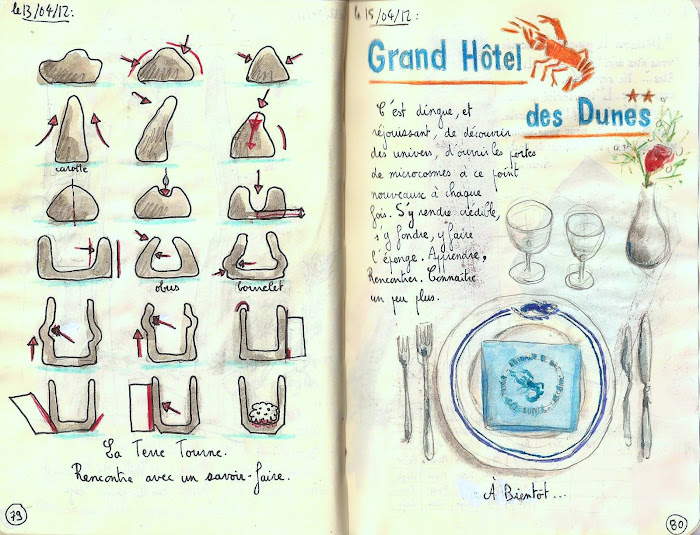 le 13/04/12:
carotte
obus
bourrelet
La Terre Tourne.
Rencontre avec un savoir-faire.
79
le 15/04/12:
Grand Hôtel
des Dunes
C'est dingue, et
réjouissant, de découvrir
des univers, d'ouvrir les portes
de microcosmes à ce point
nouveaux à chaque
fois. S'y rendre crédible,
s'y fondre, y faire
l'éponge. Apprendre,
Rencontrer. Connaître
un peu plus.
À Bientôt...
80